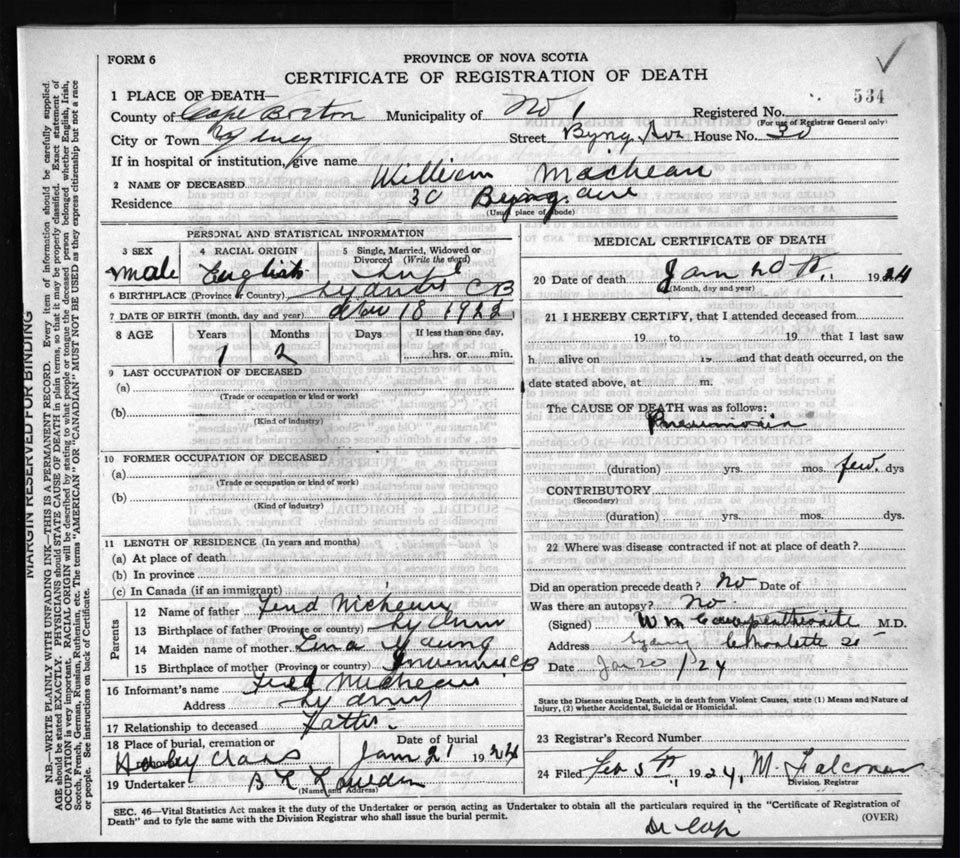 FORM 6
PROVINCE OF NOVA SCOTIA
CERTIFICATE OF REGISTRATION OF DEATH
534
1 PLACE OF DEATH—
County of Cape Breton Municipality of No 1 Registered No.
(For use of Registrar General only)
City or Town Sydney Street Byng Ave House No. 30
If in hospital or institution, give name
2 NAME OF DECEASED William
Residence 30 Byng ave
(Usual place of abode)
PERSONAL AND STATISTICAL INFORMATION
3 SEX 4 RACIAL ORIGIN 5 Single, Married, Widowed or Divorced (Write the word)
male English single
6 BIRTHPLACE (Province or Country) Sydney CB
7 DATE OF BIRTH (month, day and year) Nov 18 1922
8 AGE Years Months Days If less than one day,
1 2 hrs. or min.
9 LAST OCCUPATION OF DECEASED
(a)
(Trade or occupation or kind or work)
(b)
(Kind of industry)
10 FORMER OCCUPATION OF DECEASED
(a)
(Trade or occupation or kind of work)
(b)
(Kind of industry)
11 LENGTH OF RESIDENCE (In years and months)
(a) At place of death
(b) In province
(c) In Canada (if an immigrant)
Parents
12 Name of father
13 Birthplace of father (Province or country) Sydney
14 Maiden name of mother Lena Young
15 Birthplace of mother (Province or country) CB
16 Informant's name Fred
Address Sydney
17 Relationship to deceased Father
18 Place of burial, cremation or Date of burial
Jan 21 1924
19 Undertaker
(Name and Address)
MEDICAL CERTIFICATE OF DEATH
20 Date of death Jan 20th 1924
(Month, day and year)
21 I HEREBY CERTIFY, that I attended deceased from
19 to 19 that I last saw
h alive on 19 and that death occurred, on the
date stated above, at m.
The CAUSE OF DEATH was as follows:
Pneumonia
(duration) yrs. mos. few dys
CONTRIBUTORY
(Secondary)
(duration) yrs. mos. dys.
22 Where was disease contracted if not at place of death?
Did an operation precede death? No Date of
Was there an autopsy? No.
(Signed) M.D.
Address Sydney Charlotte St
Date Jan 20 / 24
State the Disease causing Death, or in death from Violent Causes, state (1) Means and Nature of
Injury, (2) whether Accidental, Suicidal or Homicidal.
23 Registrar's Record Number
24 Filed Feb 5th 1924, M. Falconer
Division Registrar
SEC. 46—Vital Statistics Act makes it the duty of the Undertaker or person acting as Undertaker to obtain all the particulars required in the "Certificate of Registration of
Death" and to fyle the same with the Division Registrar who shall issue the burial permit.
(OVER)
MARGIN RESERVED FOR BINDING
N.B.—WRITE PLAINLY WITH UNFADING INK—THIS IS A PERMANENT RECORD. Every item of information should be carefully supplied.
AGE should be stated EXACTLY. PHYSICIANS should STATE CAUSE OF DEATH in plain terms, so that it may be properly classified. Exact statement of
OCCUPATION is very important. RACIAL ORIGIN will be described by stating to what people or tongue the deceased person belonged whether English, Irish,
Scotch, French, German, Russian, Ruthenian, etc. The terms "AMERICAN" OR "CANADIAN" MUST NOT BE USED as they express citizenship but not a race
or people. See instructions on back of Certificate.